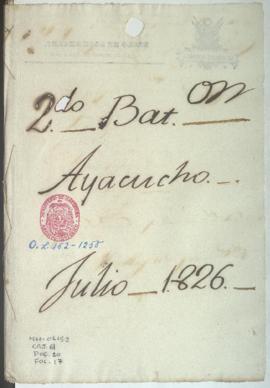 2.do _ Bat.on
Ayacucho. _.
O.L 162-1258
Julio _ 1826. _
CAJ. 61
DOC. 20
FOL. 17